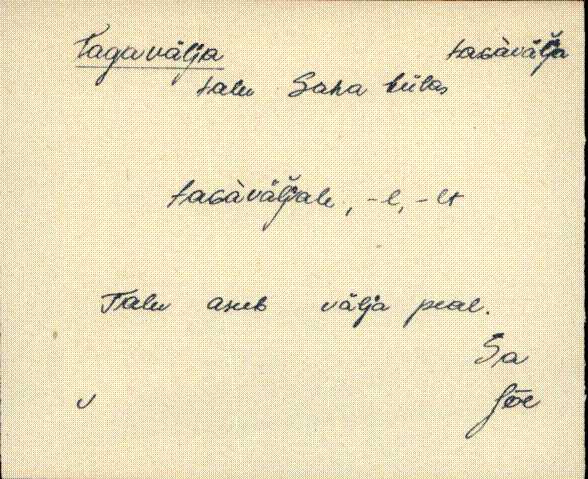 Tagavälja taGàväl̆ja
talu Saha külas
taGàväl̆jale, -l, -lt
Talu asub välja peal.
Sa
Jõe